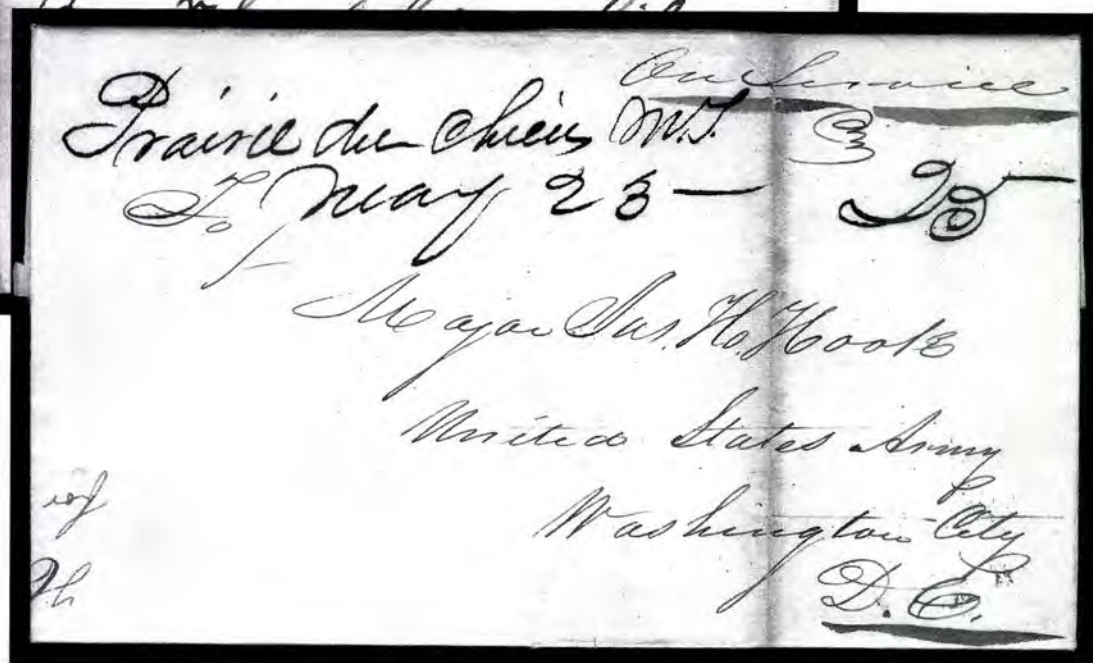 On Service
Prairie du Chien W.T.
May 23 — 25
To
Major Jas. H. Hook
United States Army
Washington City
D. C.